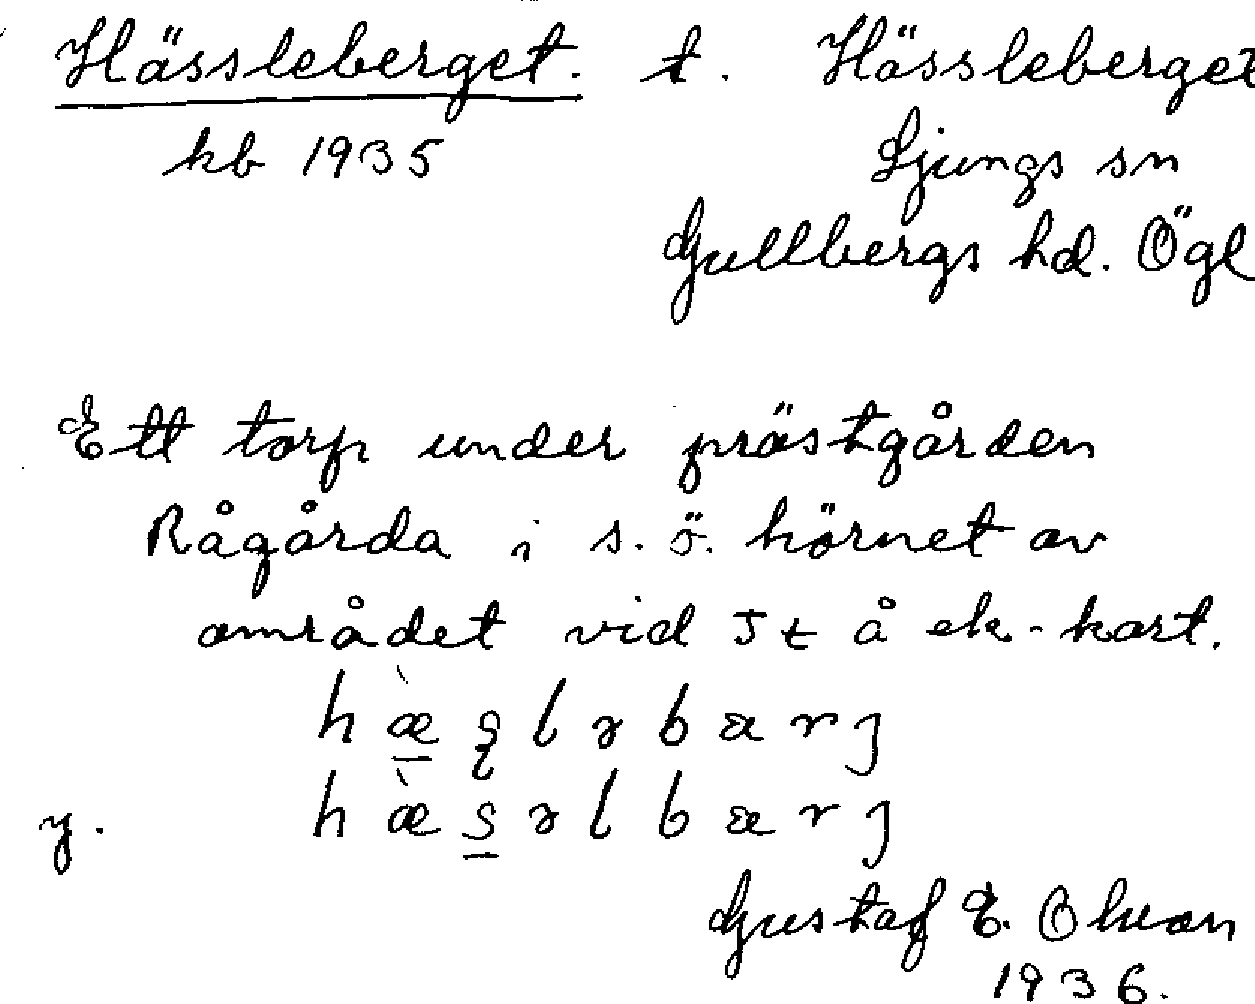 Hässleberget. t. Hässleberget
kb 1935 Ljungs sn
Gullbergs hd. Ögl
Ett torp under prästgården
Rågårda i s. ö. hörnet av
området vid J t å ek-kart.
hæ̀ʂləbærj
y. hæ̀səlbærj
Gustaf E.
1936.